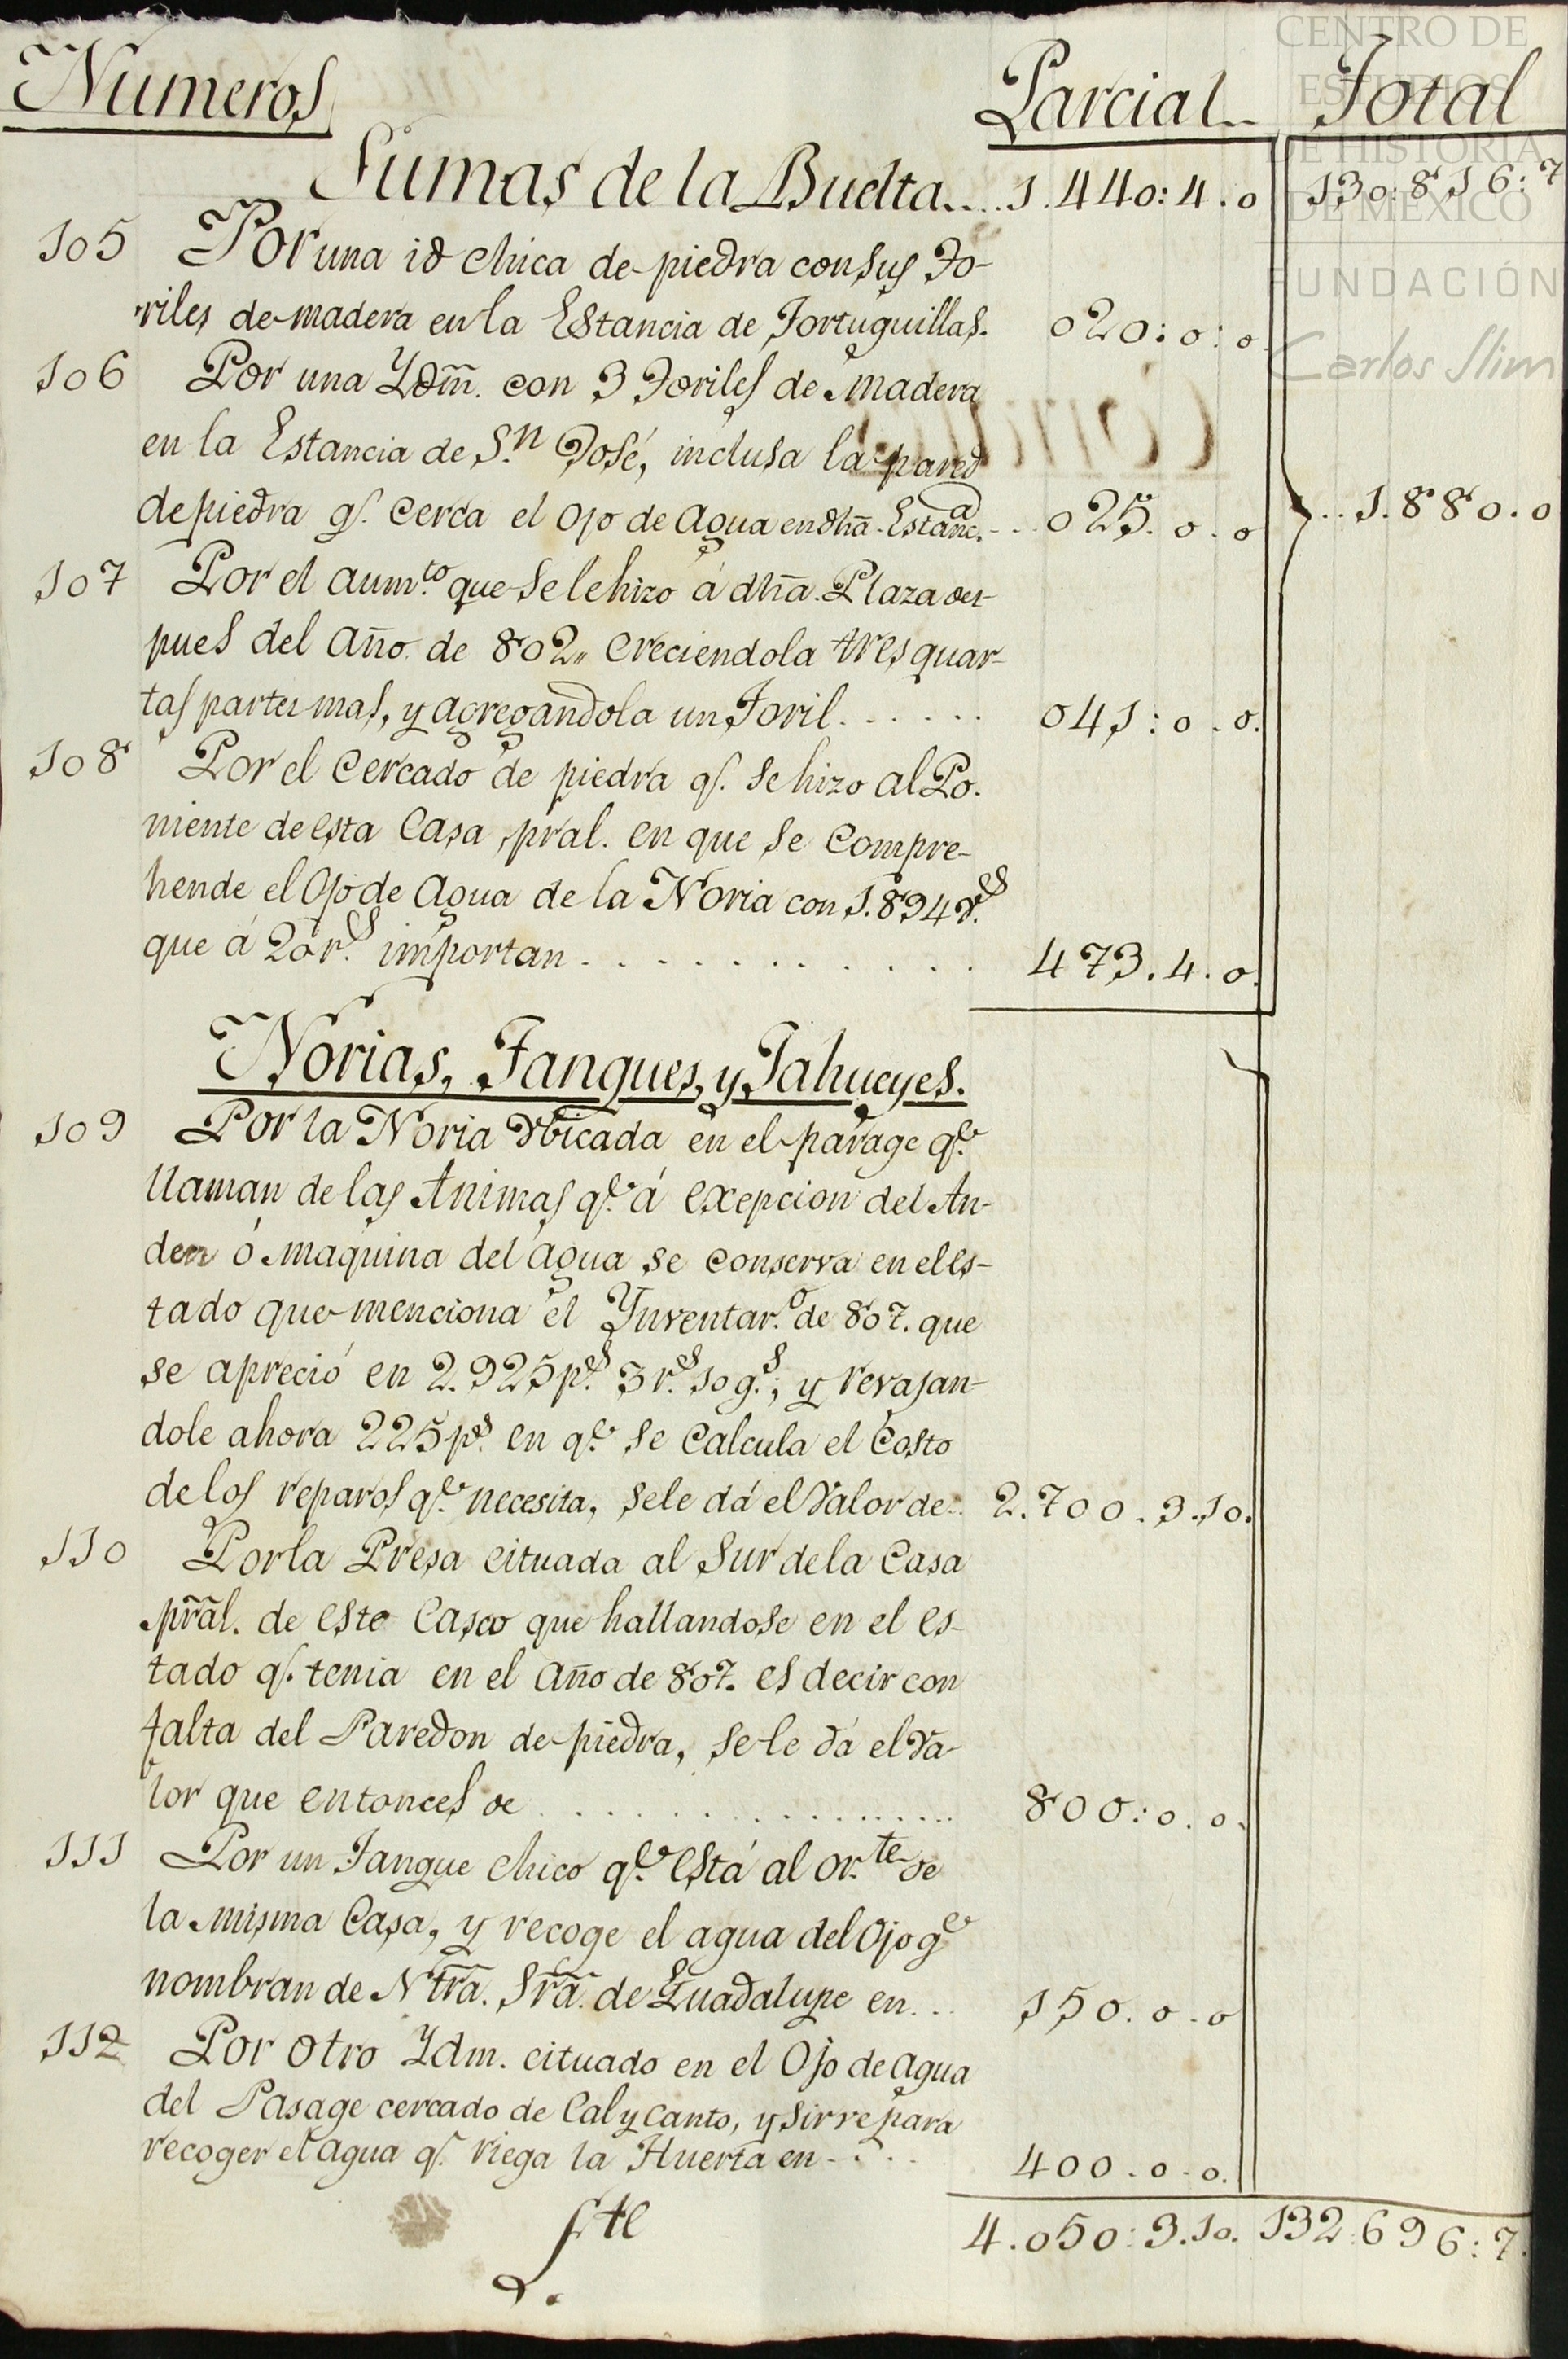 Numeros Parcial.. Total
Sumas de la Buelta.... 1.440:4.0 130:816:7
105 Por una id chica de piedra con sus To-
riles de madera en la Estancia de Tortuguillas. 020:0:0
106 Por una Ydm̃. con 3 Toriles de madera
en la Estancia de S.n José, inclusa la pared
de piedra q.e cerca el ojo de Agua en dhã. Estanc.a .. 025.0.0 .. 1.880.0
107 Por el aum.to que se le hizo á dhã. Plaza des-
pues del año de 802,, creciendola tres quar-
tas partes mas, y agregandola un Toril . . . . . . 041:0.0.
108 Por el cercado de piedra q.e se hizo al Po.
niente de esta Casa pral. en que se compre-
hende el Ojo de Agua de la Noria con 1.894 v.s
que á 20 r.s importan . . . . . . . . . . . 473.4.0.
Norias, Tanques, y Jahueyes.
109 Por la Noria Vbicada en el parage q.e
llaman de las Animas q.e á exepcion del An-
den ó maquina del agua se conserva en el es-
tado que menciona el Ynventar.o de 807. que
se apreció en 2.925 p.s 3 r.s 10 g.s; y revajan-
dole ahora 225 p.s en q.e se calcula el Costo
de los reparos q.e necesita, sele dá el Valor de.. 2.700.3.10.
110 Por la Presa cituada al Sur de la Casa
prãl. de este Casco que hallandose en el es-
tado q.e tenia en el año de 807. es decir con
falta del Paredon de piedra, se le dá el va-
lor que entonces de . . . . . . . . . . . . . . . 800:0.0.
111 Por un Tanque chico q.e está al or.te de
la misma Casa, y recoge el agua del Ojo q.e
nombran de Ntrã. Srã. de Guadalupe en... 150.0.0
112 Por otro Ydm. cituado en el Ojo de agua
del Pasage cercado de Cal y Canto, y sirve para
recoger el agua q.e riega la Huerta en . . . . 400.0.0.
fte 4.050:3.10. 132.696:7.
CENTRO DE
ESTUDIOS
DE HISTORIA
DE MÉXICO
FUNDACIÓN
Carlos Slim